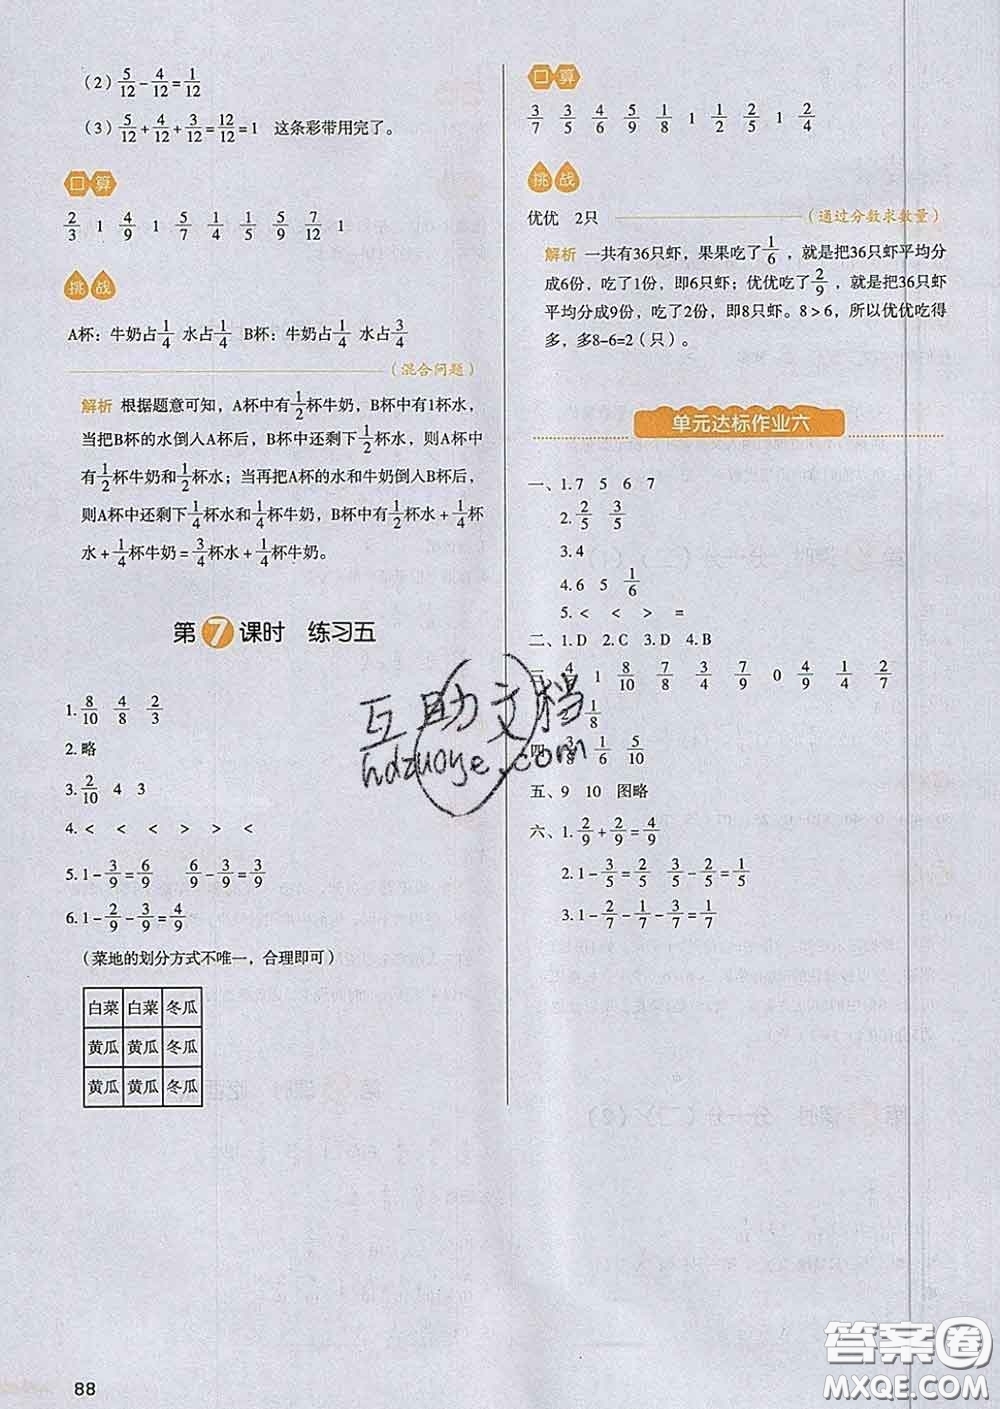 (2) 5/12-4/12=1/12
(3) 5/12+4/12+3/12=12/12=1 这条彩带用完了。
口算
2/3 1 4/9 1 5/7 1/4 4/5 5/9 7/12 1
挑战
A杯：牛奶占1/4 水占1/4 B杯：牛奶占1/4 水占3/4
(混合问题)
解析 根据题意可知，A杯中有1/2杯牛奶，B杯中有1杯水，
当把B杯的水倒入A杯后，B杯中还剩下1/2杯水，则A杯中
有1/2杯牛奶和1/2杯水；当再把A杯的水和牛奶倒入B杯后，
则A杯中还剩下1/4杯水和1/4杯牛奶，B杯中有1/2杯水+1/4杯
水+1/4杯牛奶=3/4杯水+1/4杯牛奶。
第7课时 练习五
1. 8/10 4/8 2/3
2. 略
3. 2/10 4 3
4. < < < > > <
5. 1-3/9=6/9 6/9-3/9=3/9
6. 1-2/9-3/9=4/9
(菜地的划分方式不唯一，合理即可)
白菜 白菜 冬瓜
黄瓜 黄瓜 冬瓜
黄瓜 黄瓜 冬瓜
88
口算
3/7 3/5 4/6 5/9 1/8 1 1/2 2/5 1 2/4
挑战
优优 2只 (通过分数求数量)
解析 一共有36只虾，果果吃了1/6，就是把36只虾平均分
成6份，吃了1份，即6只虾；优优吃了2/9，就是把36只虾
平均分成9份，吃了2份，即8只虾。8>6，所以优优吃得
多，多8-6=2（只）。
单元达标作业六
一、1. 7 5 6 7
2. 2/5 3/5
3. 4
4. 6 5 1/6
5. < < > =
二、1. D 2. C 3. D 4. B
三 4/4 1 8/10 7/8 3/4 7/9 0 4/9 1/4 2/7
1/8
四 3/8 1/6 5/10
五、9 10 图略
六、1. 2/9+2/9=4/9
2. 1-3/5=2/5 3/5-2/5=1/5
3. 1-2/7-1/7-3/7=1/7
互助文档
hdzuoye.com
答案圈
MXQE.COM